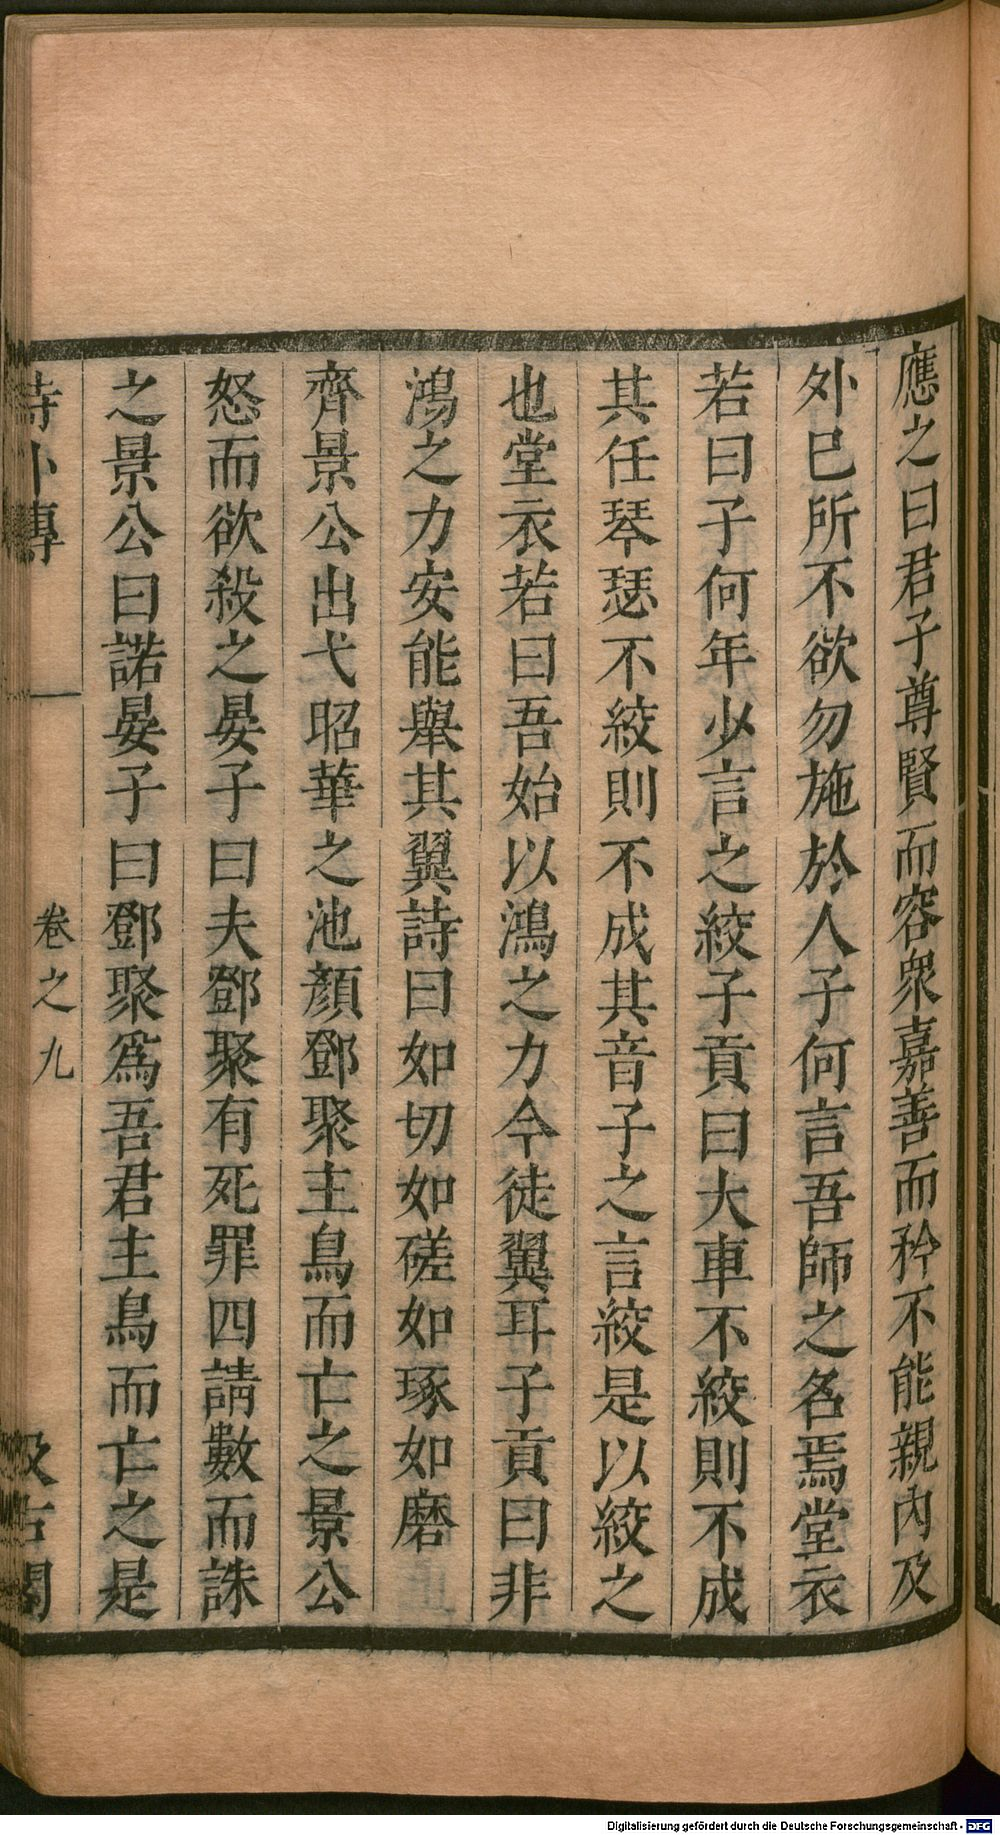 應之曰君子尊賢而容衆嘉善而矜不能親内及
外已所不欲勿施於人子何言吾師之名焉堂衣
若曰子何年少言之絞子貢曰大車不絞則不成
其任琴瑟不絞則不成其音子之言絞是以絞之
也堂衣若曰吾始以鴻之力今徒翼耳子貢曰非
鴻之力安能舉其翼詩曰如切如磋如琢如磨
齊景公出弋昭華之池顏鄧聚主鳥而亡之景公
怒而欲殺之晏子曰夫鄧聚有死罪四請數而誅
之景公曰諾晏子曰鄧聚爲吾君主鳥而亡之是
詩外傳 卷之九 汲古閣
Digitalisierung gefördert durch die Deutsche Forschungsgemeinschaft - DFG